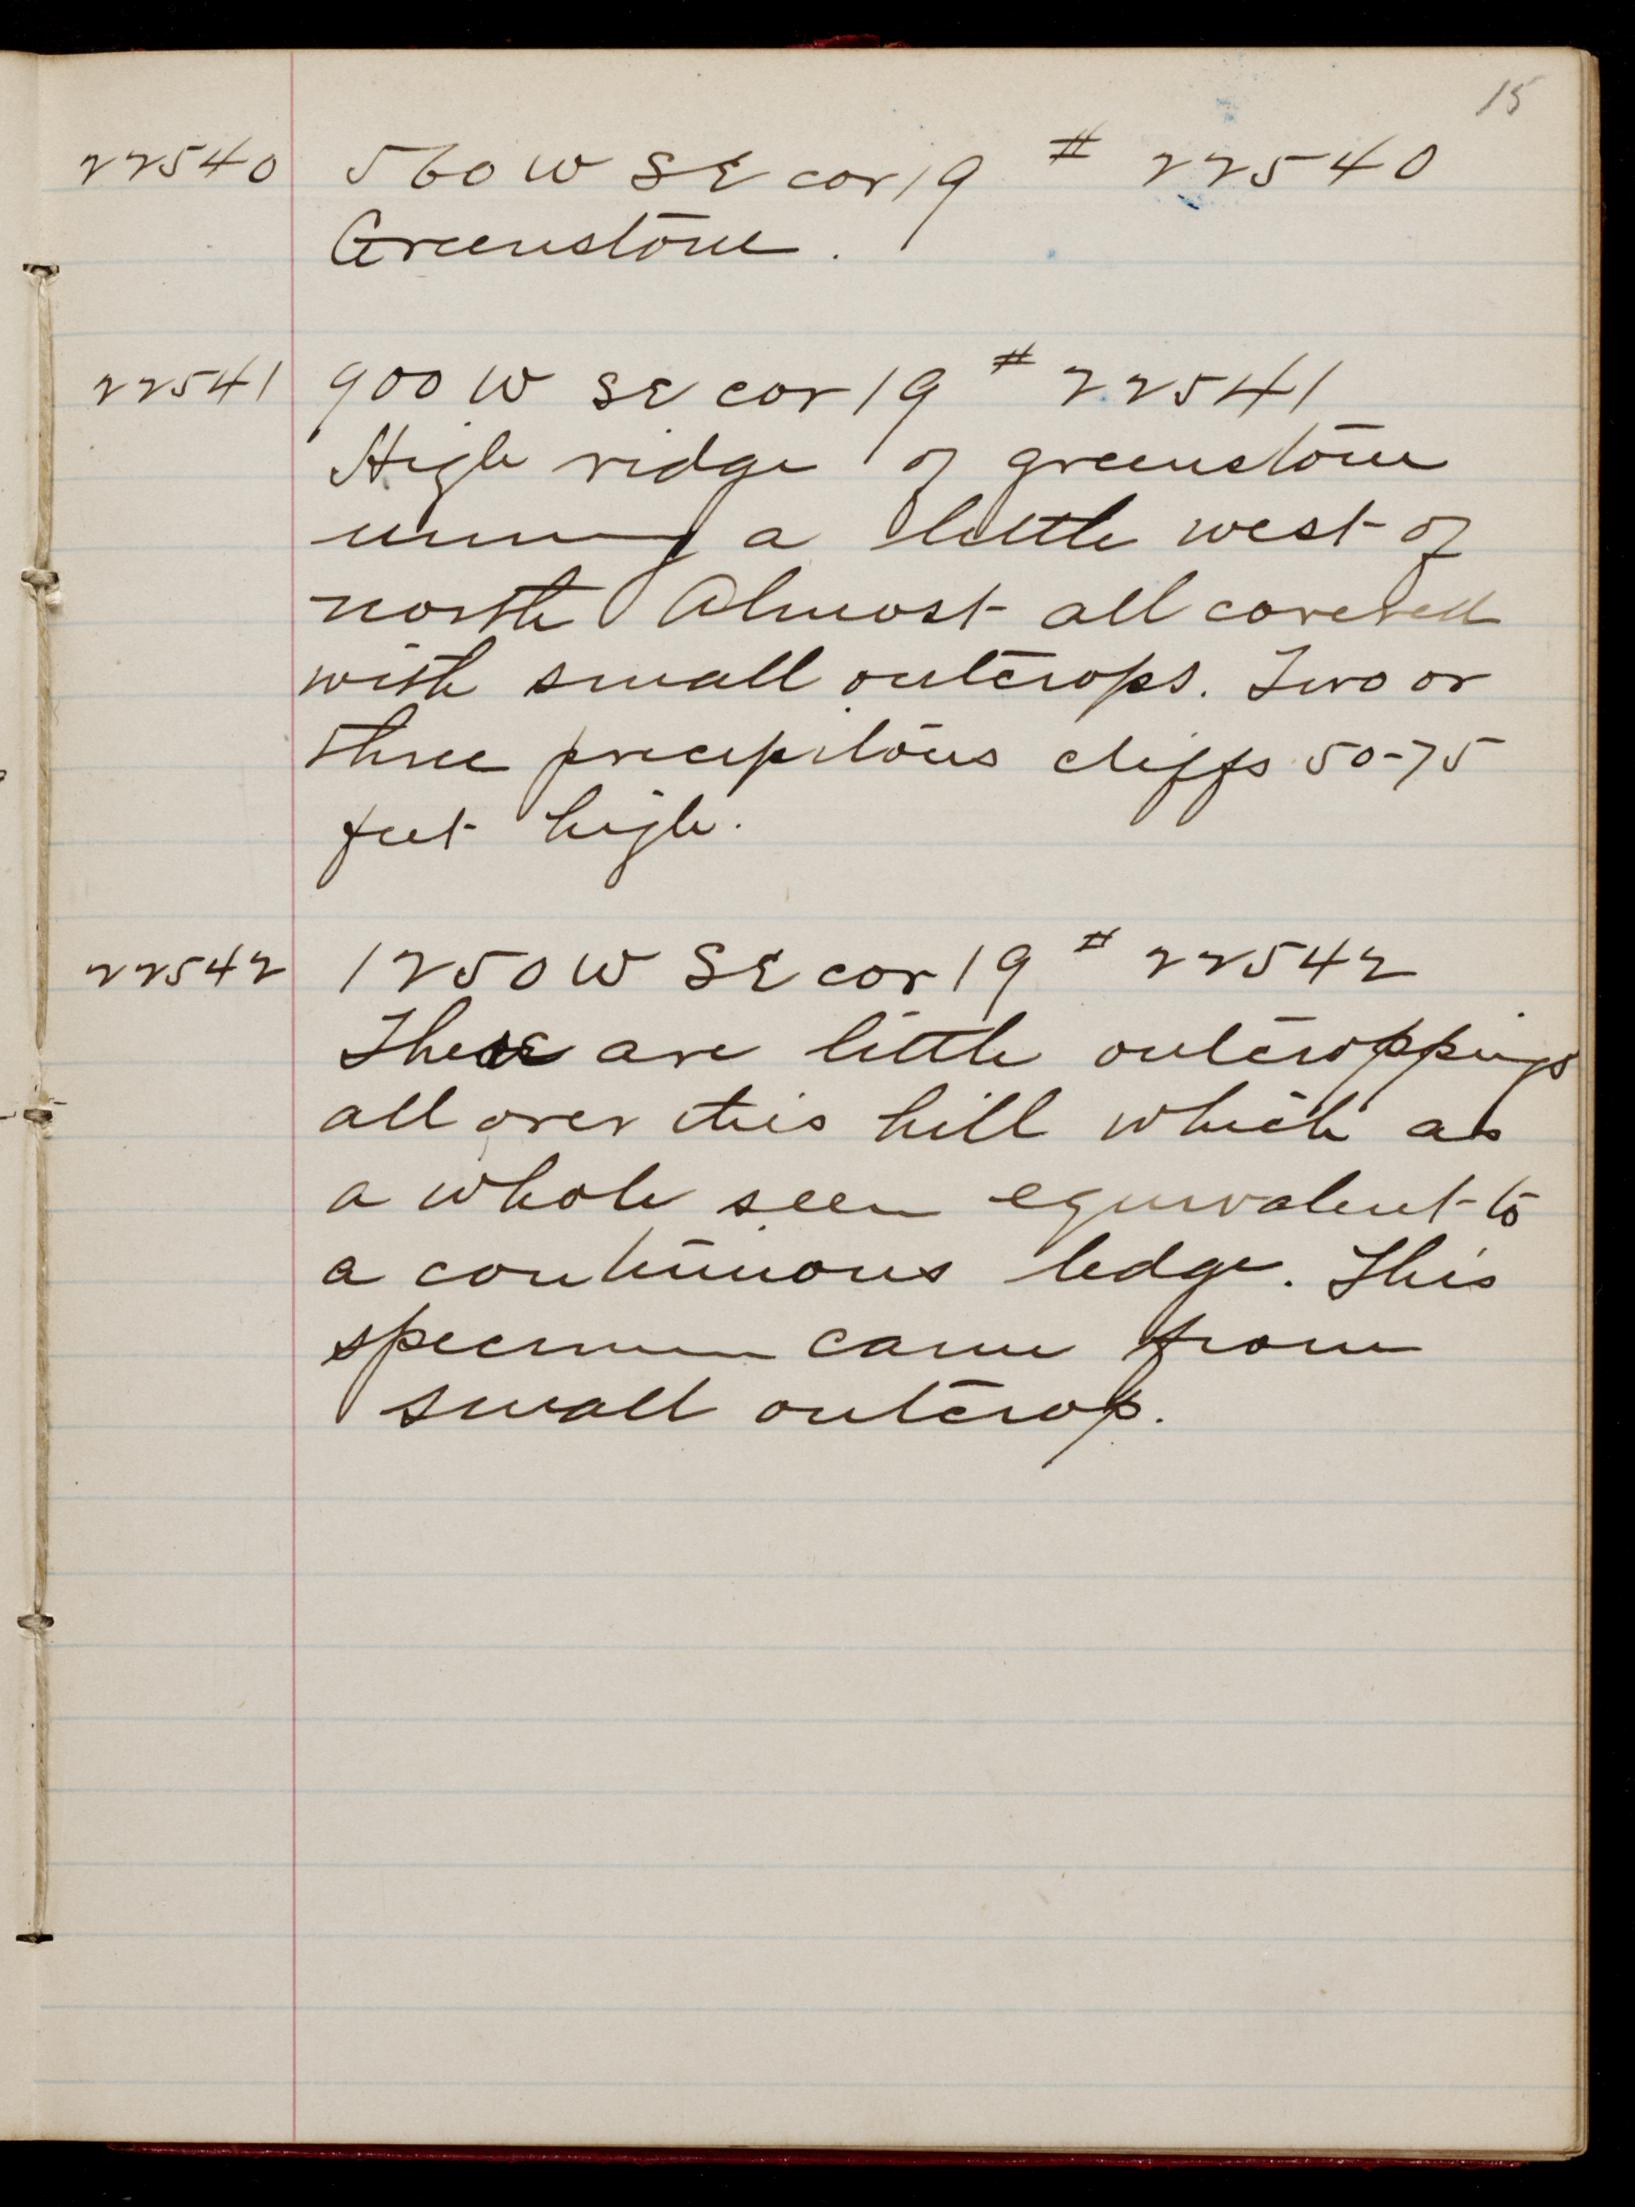 15
22540 560 W SE cor 19 # 22540
Greenstone.
22541 900 W SE cor 19 # 22541
High ridge of greenstone
running a little west of
north Almost all covered
with small outcrops. Two or
three precipitous cliffs 50-75
feet high.
22542 1250 W SE cor 19 # 22542
There are little outcroppings
all over this hill which as
a whole seem equivalent to
a continuous ledge. This
specimen came from
small outcrop.